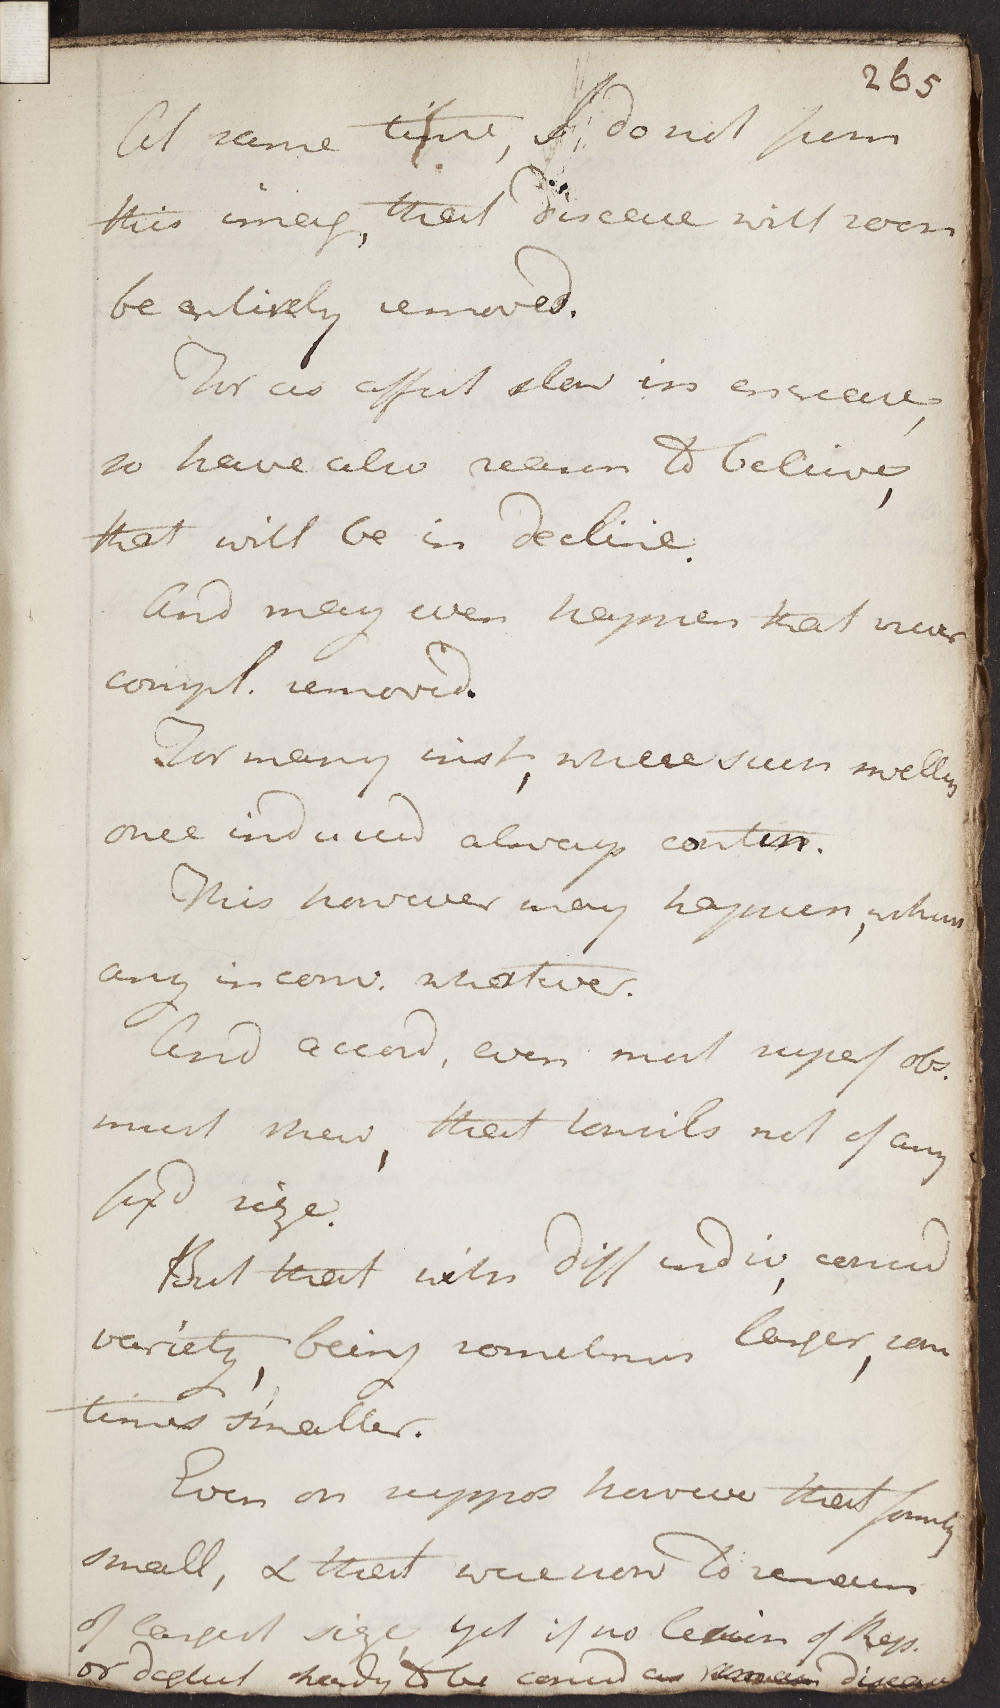 265
At same time, I do not from
this imag, that disease will soon
be entirely removed.
For as affect slow in increase,
so have also reason to believe,
that will be in decline.
And may even happen that never
compl. removed.
For many inst, where such swelling
once induced always contin.
This however may happen, without
any inconv. whatever.
And accord, even most superf obs.
must shew, that tonsils not of any
fixd size.
But that in diff indiv, consid
variety, being sometimes larger, som
times smaller.
Even on suppos however that formerly
small, & that were now to remain
of largest size, yet if no lesion of Resp.
or deglut hardly to be consid as disease